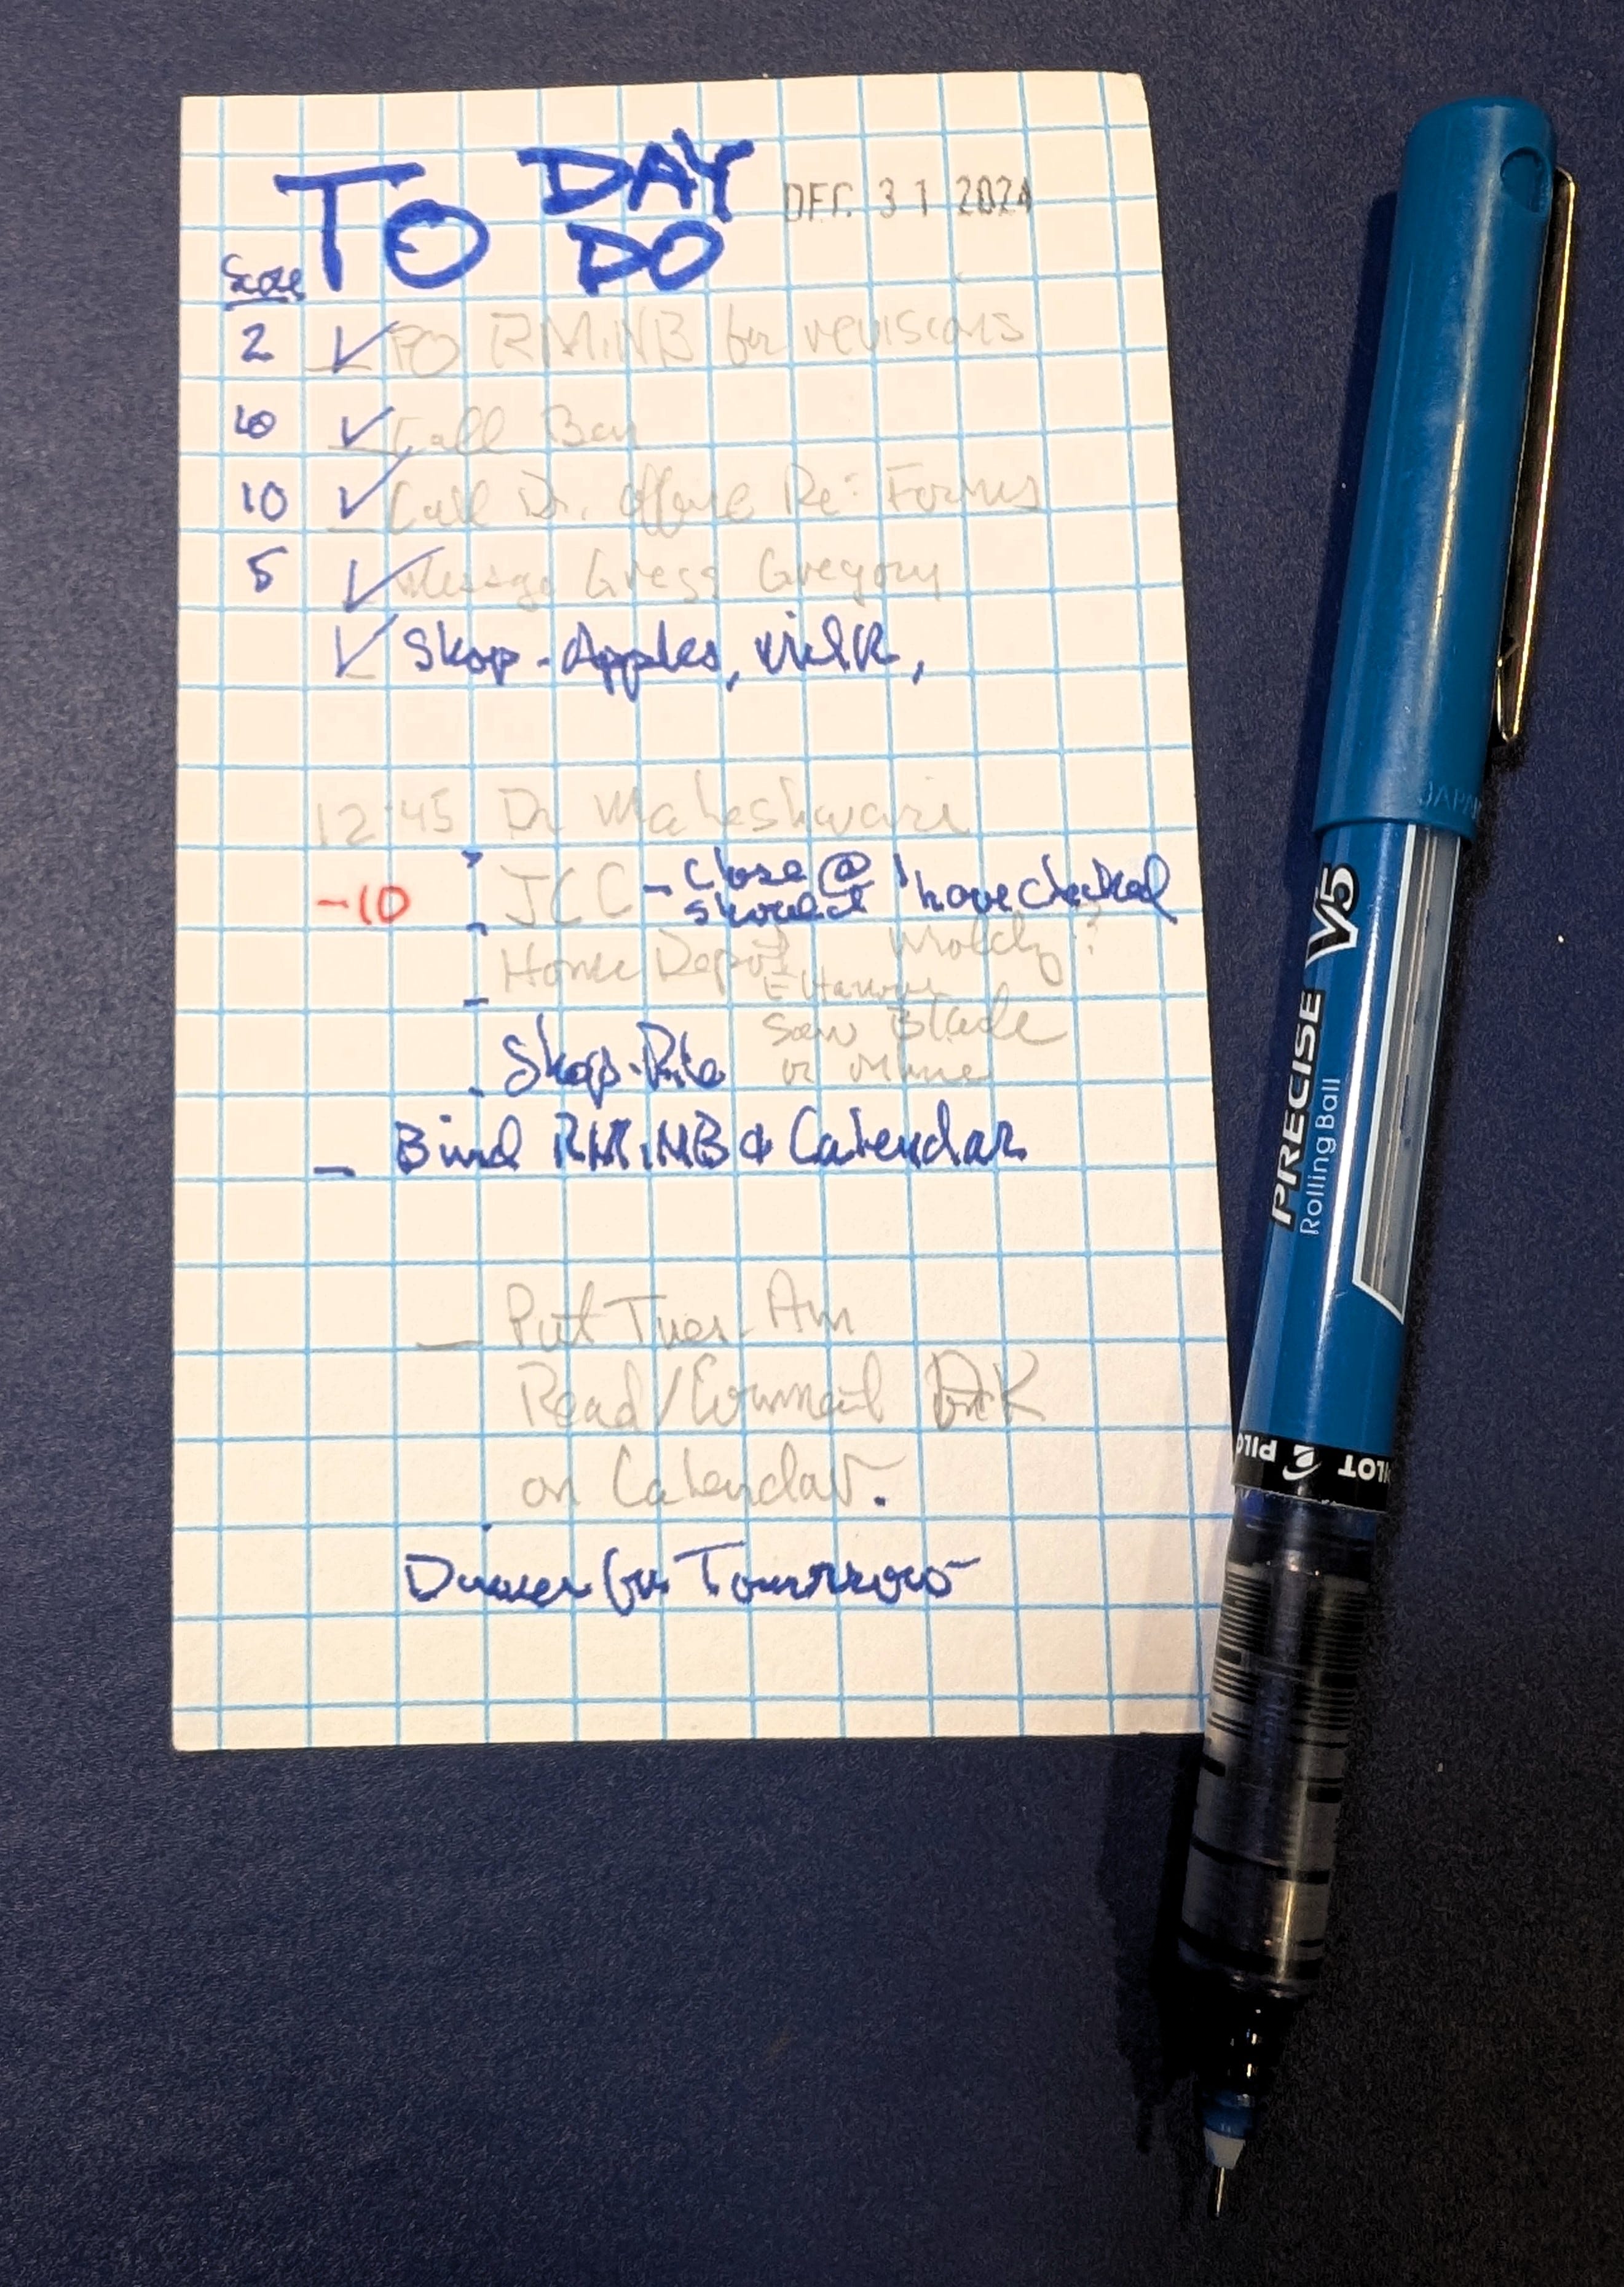 TO DAY DO
DEC. 31 2024
Score
2 ✓ PO RMiNB for revisions
✓ Call Ben
10 ✓ Call Dr. Office Re: Forms
5 ✓ Message Gregg Gregory
✓ Shop - Apples, milk,
12:45 Dr Maheshwari
-10 JCC - Close @ 1
should have checked
Home Depot Moldy?
Saw Blade
or Mine
Shop-Rite
- Bind RMiNB & Calendar
- Put Tues. Am
Read/
on Calendar.
Dinner for Tomorrow
JAPAN
PRECISE V5
Rolling Ball
PILOT PILOT